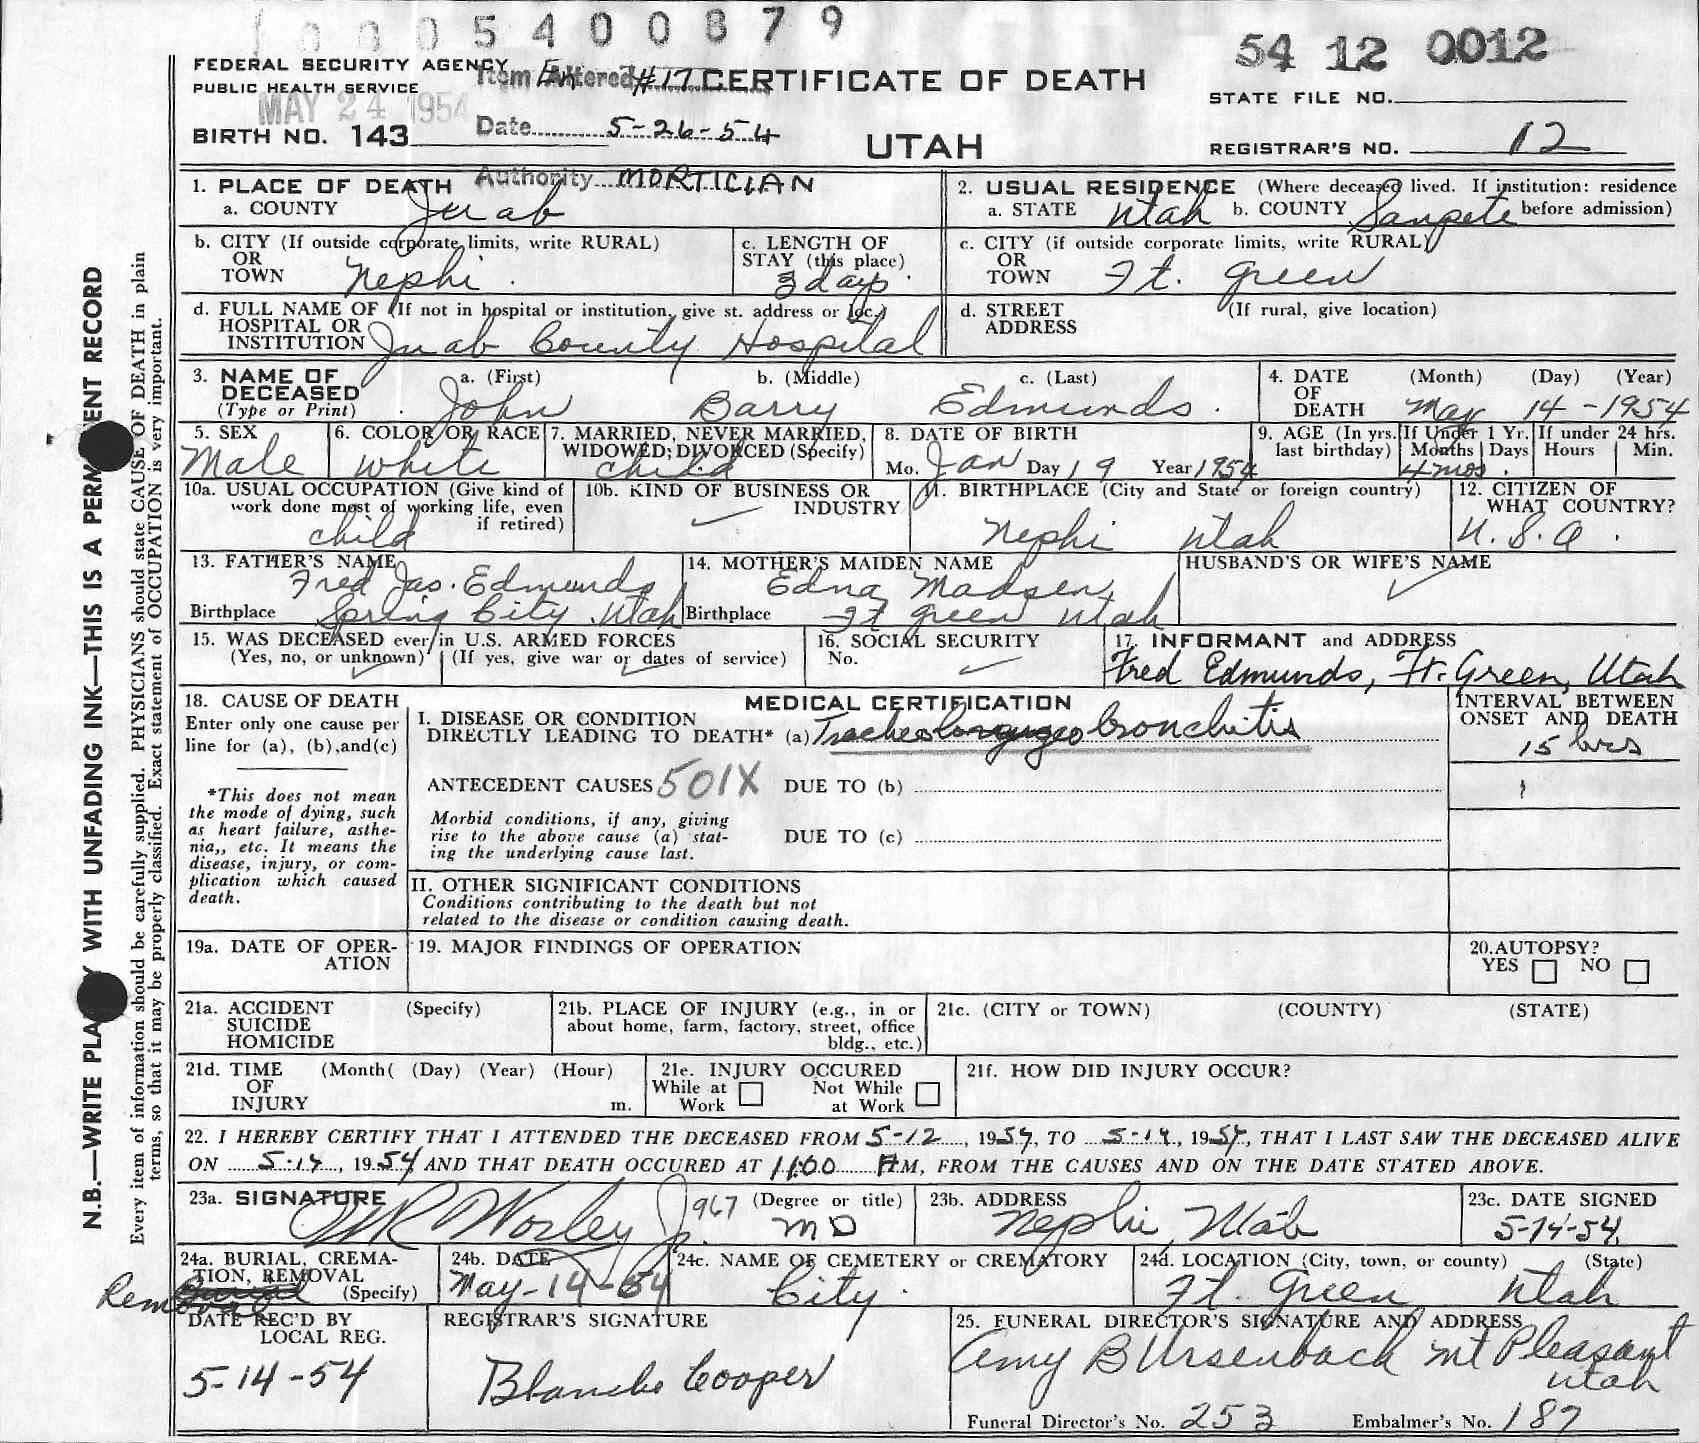 0005400879
54 12 0012
FEDERAL SECURITY AGENCY
PUBLIC HEALTH SERVICE
MAY 24 1954
Item Entered #17
CERTIFICATE OF DEATH
STATE FILE NO.
BIRTH NO. 143
Date 5-26-54
UTAH
REGISTRAR'S NO. 12
Authority MORTICIAN
1. PLACE OF DEATH
a. COUNTY Juab
2. USUAL RESIDENCE (Where deceased lived. If institution: residence before admission)
a. STATE Utah b. COUNTY Sanpete
b. CITY (If outside corporate limits, write RURAL)
OR
TOWN Nephi
c. LENGTH OF
STAY (this place)
3 days
c. CITY (if outside corporate limits, write RURAL)
OR
TOWN Ft. Green
d. FULL NAME OF (If not in hospital or institution, give st. address or loc.)
HOSPITAL OR
INSTITUTION Juab County Hospital
d. STREET (If rural, give location)
ADDRESS
3. NAME OF
DECEASED
(Type or Print)
a. (First) b. (Middle) c. (Last)
John Barry Edmunds
4. DATE (Month) (Day) (Year)
OF
DEATH May 14-1954
5. SEX
Male
6. COLOR OR RACE
White
7. MARRIED, NEVER MARRIED,
WIDOWED; DIVORCED (Specify)
child
8. DATE OF BIRTH
Mo. Jan Day 19 Year 1954
9. AGE (In yrs. last birthday)
If Under 1 Yr.
Months Days
4 mos.
If under 24 hrs.
Hours Min.
10a. USUAL OCCUPATION (Give kind of
work done most of working life, even
if retired)
child
10b. KIND OF BUSINESS OR
INDUSTRY
11. BIRTHPLACE (City and State or foreign country)
Nephi Utah
12. CITIZEN OF
WHAT COUNTRY?
U. S. A.
13. FATHER'S NAME
Fred Jas. Edmunds
Birthplace Spring City Utah
14. MOTHER'S MAIDEN NAME
Edna Madsen
Birthplace Ft Green Utah
HUSBAND'S OR WIFE'S NAME
15. WAS DECEASED ever in U.S. ARMED FORCES
(Yes, no, or unknown) (If yes, give war or dates of service)
16. SOCIAL SECURITY
No.
17. INFORMANT and ADDRESS
Fred Edmunds, Ft. Green, Utah
18. CAUSE OF DEATH
Enter only one cause per
line for (a), (b),and(c)
*This does not mean
the mode of dying, such
as heart failure, asthe-
nia,, etc. It means the
disease, injury, or com-
plication which caused
death.
MEDICAL CERTIFICATION
I. DISEASE OR CONDITION
DIRECTLY LEADING TO DEATH* (a) Tracheolaryngeobronchitis
INTERVAL BETWEEN
ONSET AND DEATH
15 hrs
ANTECEDENT CAUSES 501X DUE TO (b)
Morbid conditions, if any, giving
rise to the above cause (a) stat-
ing the underlying cause last.
DUE TO (c)
II. OTHER SIGNIFICANT CONDITIONS
Conditions contributing to the death but not
related to the disease or condition causing death.
19a. DATE OF OPER-
ATION
19. MAJOR FINDINGS OF OPERATION
20. AUTOPSY?
YES NO
21a. ACCIDENT (Specify)
SUICIDE
HOMICIDE
21b. PLACE OF INJURY (e.g., in or
about home, farm, factory, street, office
bldg., etc.)
21c. (CITY or TOWN) (COUNTY) (STATE)
21d. TIME (Month( (Day) (Year) (Hour)
OF
INJURY m.
21e. INJURY OCCURED
While at Work Not While at Work
21f. HOW DID INJURY OCCUR?
22. I HEREBY CERTIFY THAT I ATTENDED THE DECEASED FROM 5-12, 1954, TO 5-14, 1954, THAT I LAST SAW THE DECEASED ALIVE
ON 5-14, 1954 AND THAT DEATH OCCURED AT 11:00 AM, FROM THE CAUSES AND ON THE DATE STATED ABOVE.
23a. SIGNATURE (Degree or title)
Worley Jr. 967 MD
23b. ADDRESS
Nephi, Utah
23c. DATE SIGNED
5-14-54
24a. BURIAL, CREMA-
TION, REMOVAL
(Specify)
Burial
Removal
24b. DATE
May-14-54
24c. NAME OF CEMETERY or CREMATORY
City
24d. LOCATION (City, town, or county) (State)
Ft. Green Utah
DATE REC'D BY
LOCAL REG.
5-14-54
REGISTRAR'S SIGNATURE
Blanche Cooper
25. FUNERAL DIRECTOR'S SIGNATURE AND ADDRESS
Amy B Ursenbach Mt Pleasant
Utah
Funeral Director's No. 253 Embalmer's No. 187
N.B.—WRITE PLA WITH UNFADING INK—THIS IS A PERM ENT RECORD
Every item of information should be carefully supplied. PHYSICIANS should state CAUSE OF DEATH in plain
terms, so that it may be properly classified. Exact statement of OCCUPATION is very important.